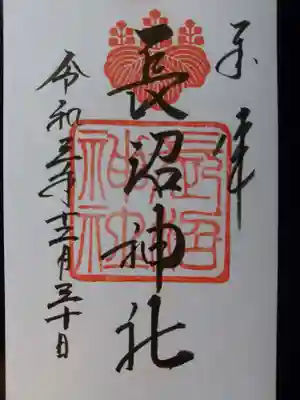 奉拝
長沼神社
令和三年十二月三十日
長沼神社